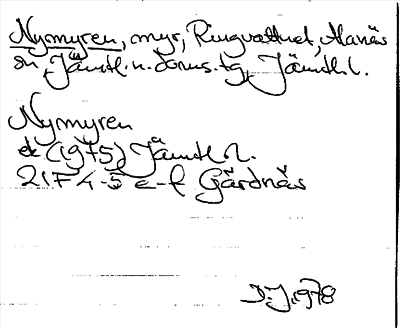 Nymyren, myr, Ringvattnet, Alanäs
sn, Jämtl. n. doms. tg, Jämtl. l.
Nymyren
ek (1975) Jämtl. l.
21F 4-5 e-f Gärdnäs
I.J. 1978